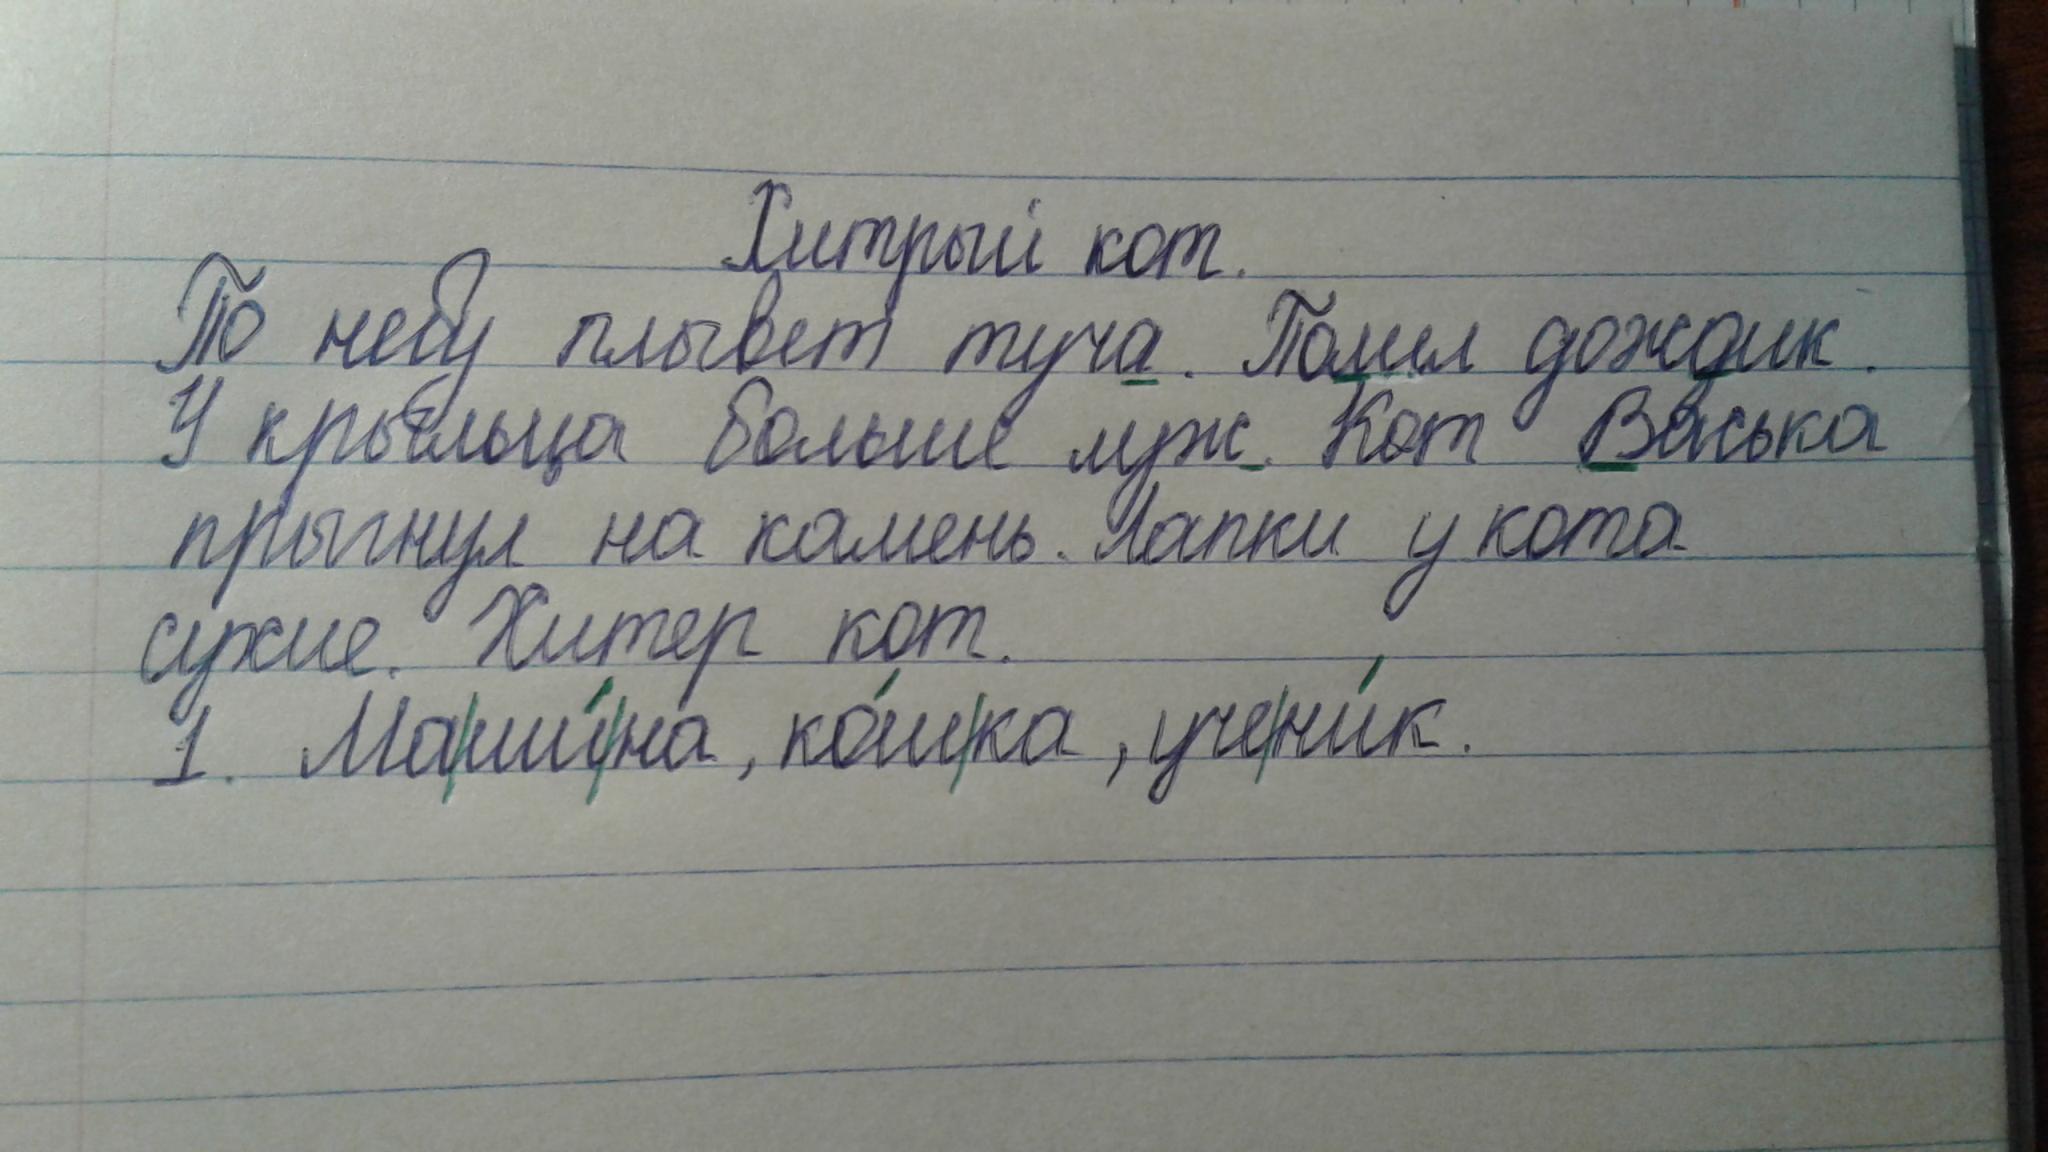 Хитрый кот.
По небу плывет туча. Полил дождик.
У крыльца больше луж. Кот Васька
прыгнул на камень. Лапки у кота
сухие. Хитер кот.
1. Ма/ши́/на, ко́ш/ка, уче/ни́к.